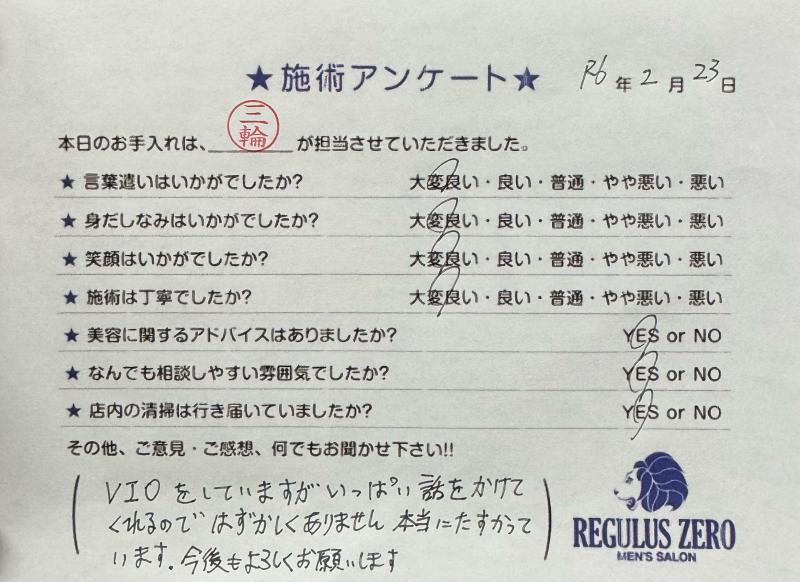 ★施術アンケート★ R6年2月23日
本日のお手入れは、三輪が担当させていただきました。
★ 言葉遣いはいかがでしたか? 大変良い・良い・普通・やや悪い・悪い
★ 身だしなみはいかがでしたか? 大変良い・良い・普通・やや悪い・悪い
★ 笑顔はいかがでしたか? 大変良い・良い・普通・やや悪い・悪い
★ 施術は丁寧でしたか? 大変良い・良い・普通・やや悪い・悪い
★ 美容に関するアドバイスはありましたか? YES or NO
★ なんでも相談しやすい雰囲気でしたか? YES or NO
★ 店内の清掃は行き届いていましたか? YES or NO
その他、ご意見・ご感想、何でもお聞かせ下さい!!
VIOをしていますがいっぱい話をかけて
くれるのではずかしくありません 本当にたすかって
います。今後もよろしくお願いします
REGULUS ZERO
MEN'S SALON